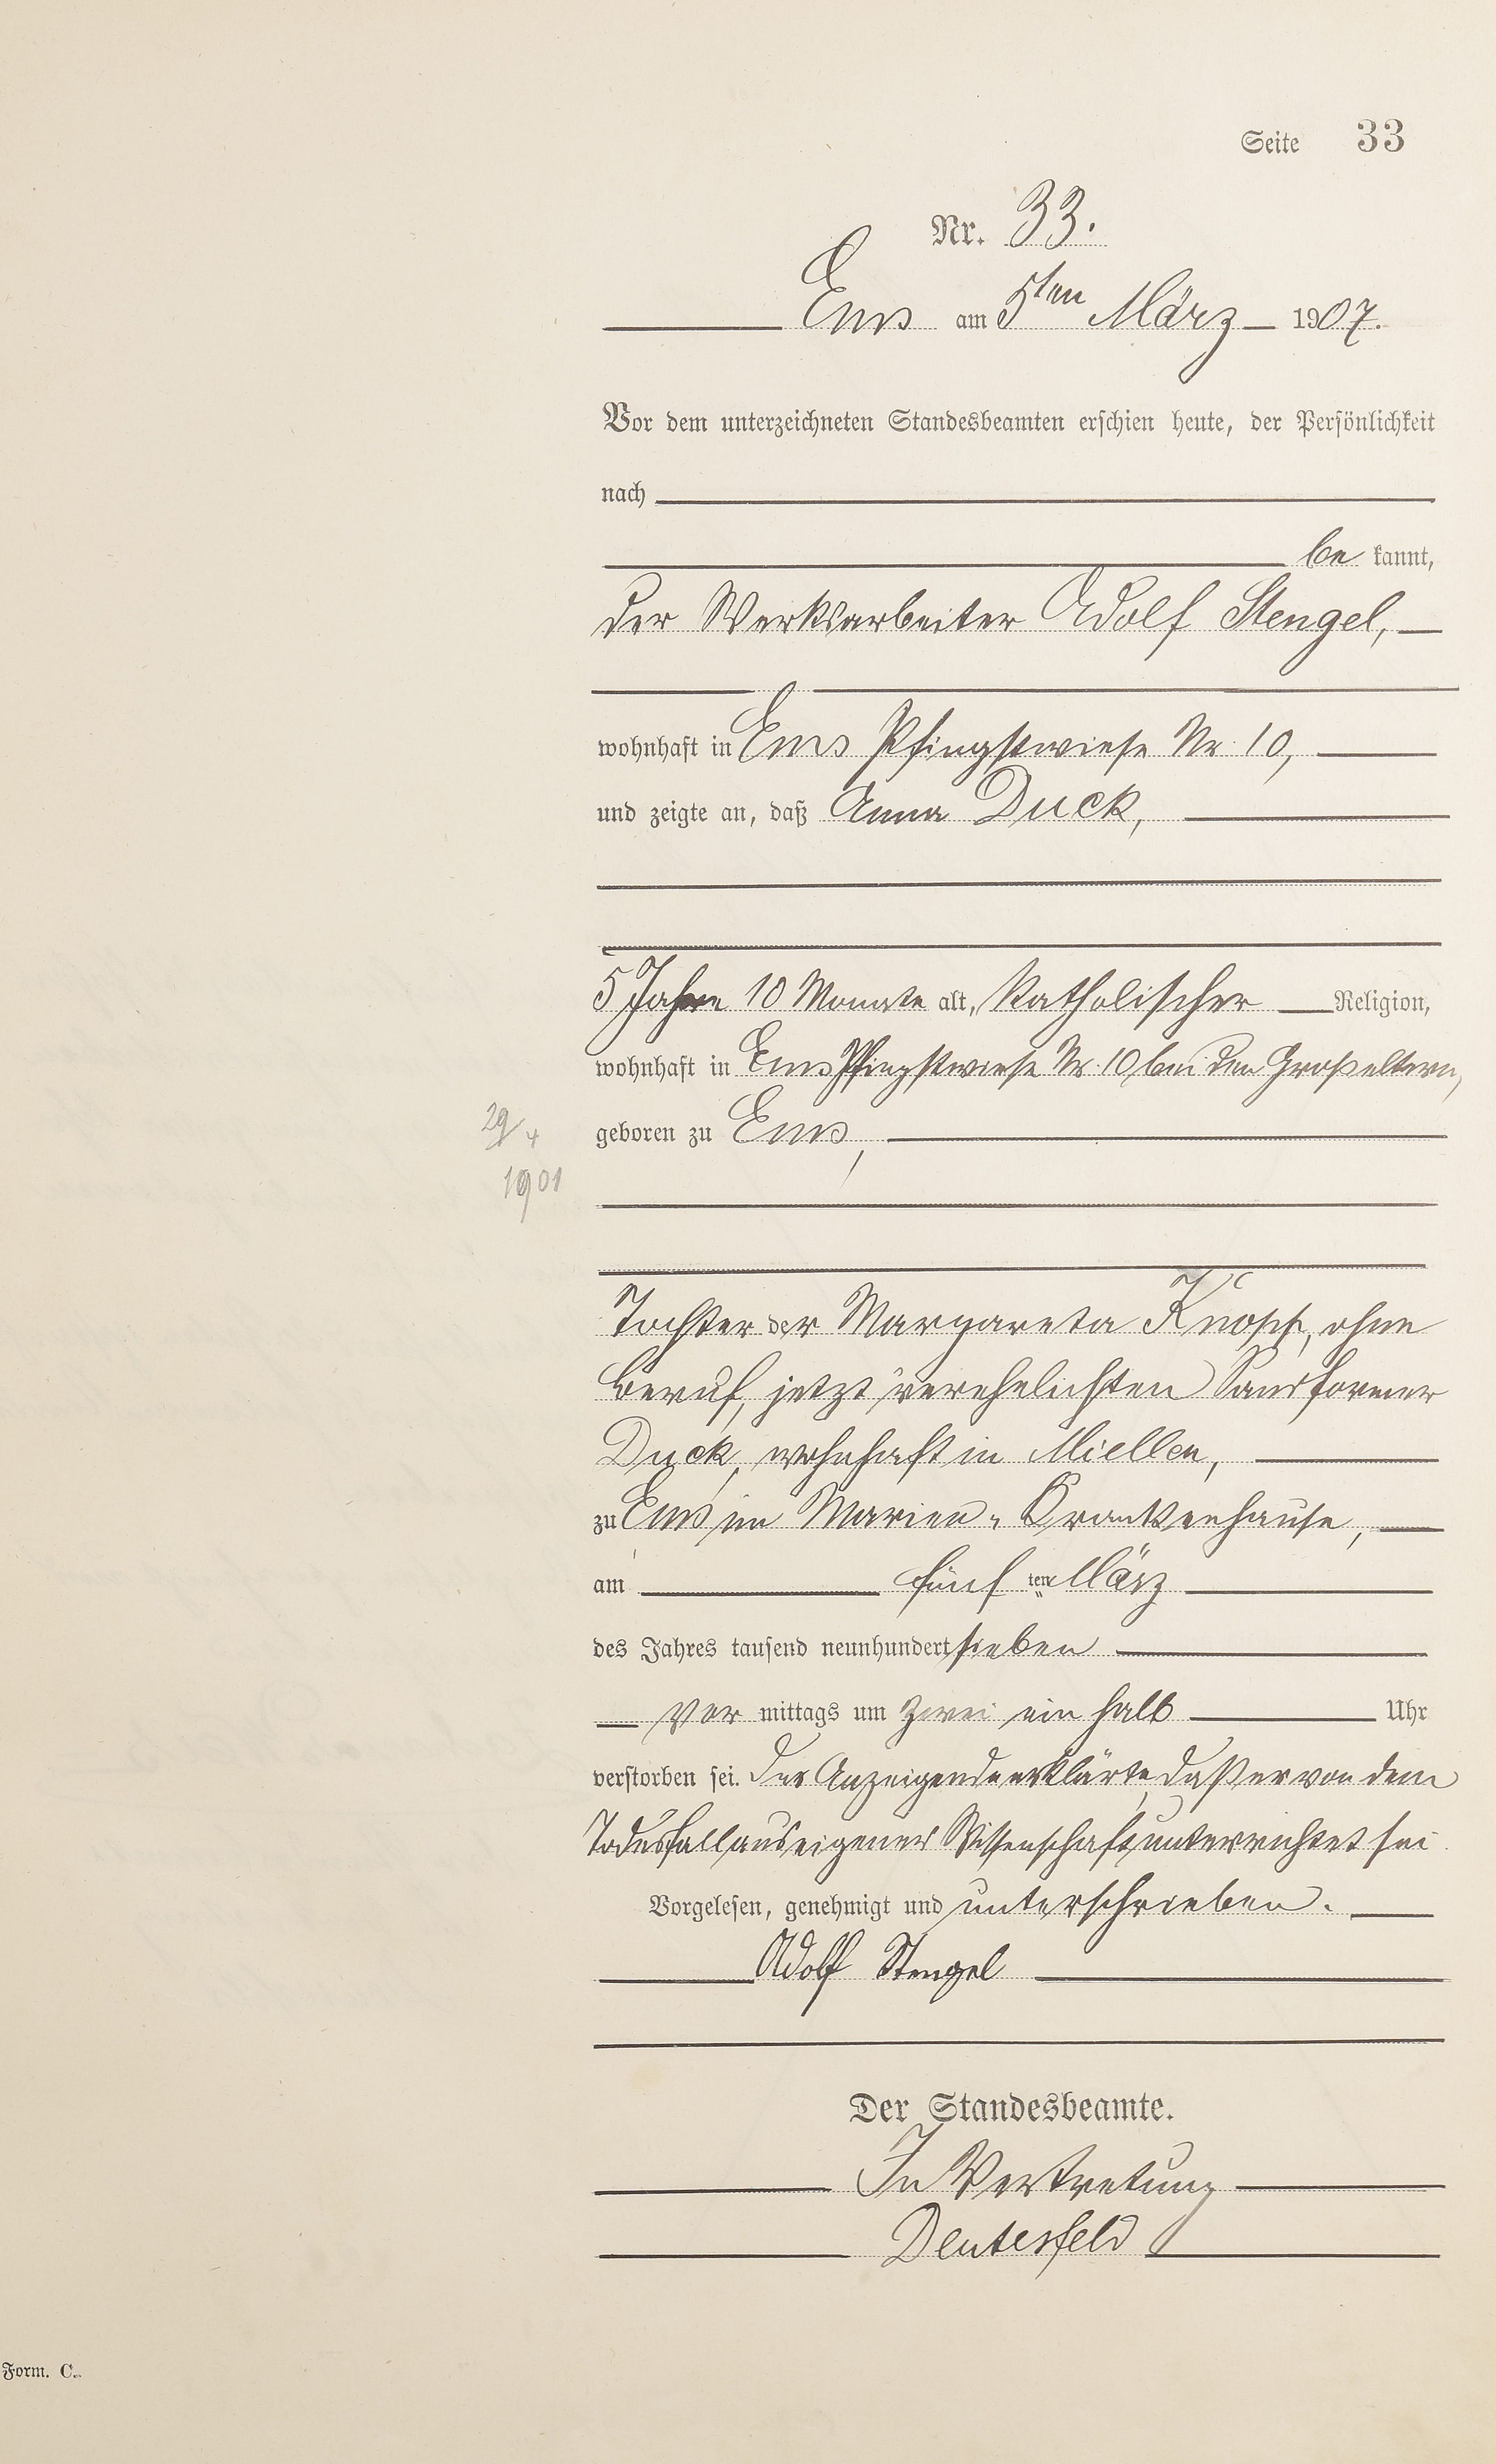 Seite 33
Nr. 33.
Ems am 5ten März 1907.
Vor dem unterzeichneten Standesbeamten erschien heute, der Persönlichkeit
nach
be kannt,
der Werksarbeiter Adolf Stengel,
wohnhaft in Ems Pfingstwiese Nr. 10,
und zeigte an, daß Anna Duck,
5 Jahre 10 Monate alt, katholischer Religion,
wohnhaft in Ems Pfingstwiese Nr. 10 bei den Großeltern,
29/4
geboren zu Ems,
1901
Tochter der Margareta Knopp, ohne
Beruf, jetzt verehelichten Sandformer
Duck, wohnhaft in Miellen,
zu Ems im Marien-Krankenhause,
am fünften März
des Jahres tausend neunhundert sieben
Vor mittags um zwei ein halb Uhr
verstorben sei. Der Anzeigende erklärte, daß er von dem
Todesfall aus eigener Wissenschaft unterrichtet sei
Vorgelesen, genehmigt und unterschrieben.
Adolf Stengel
Der Standesbeamte.
In Vertretung
Deutesfeld
Form. C.